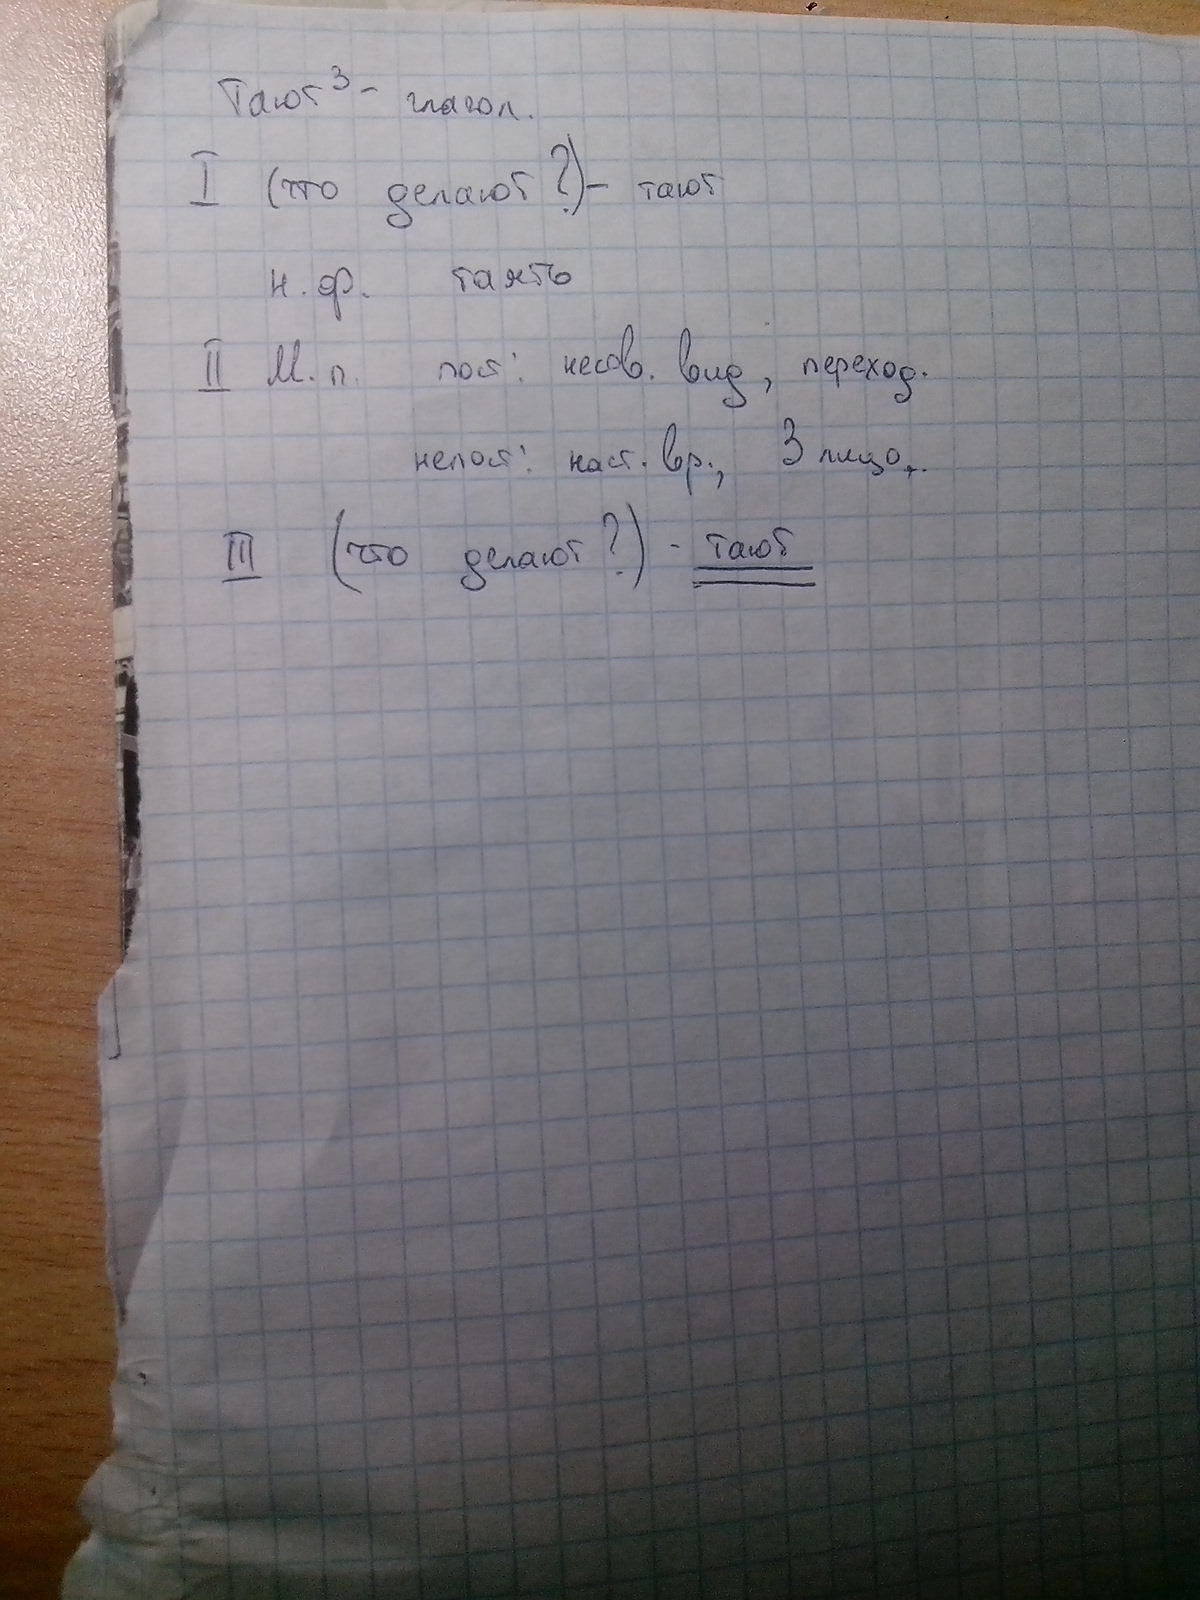 Тают³ - глагол.
I (что делают?) - тают
н.ф. таять
II М.п. пост: несов. вид, переход.
непост: наст. вр., 3 лицо,.
III (что делают?) - тают